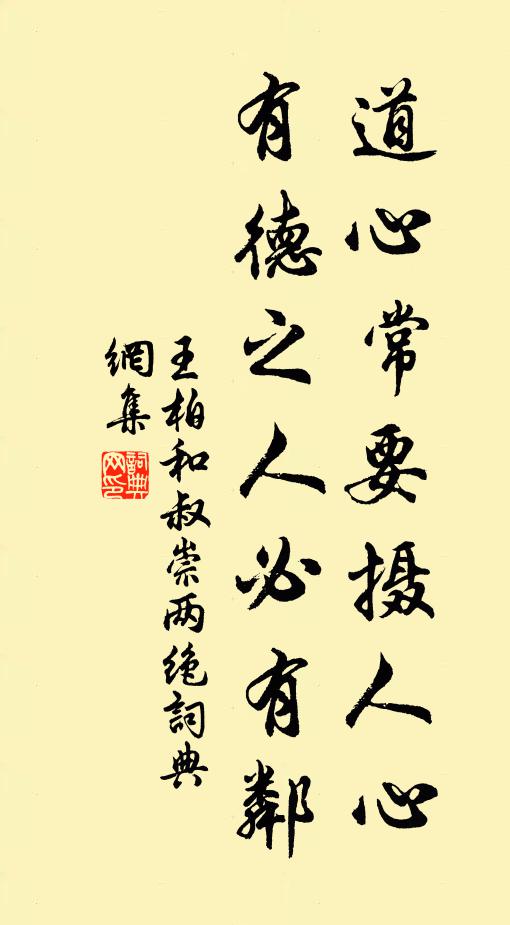 道心常要摄人心
有德之人必有鄰
王柏和叔崇两绝詞典
網集
詞典網印